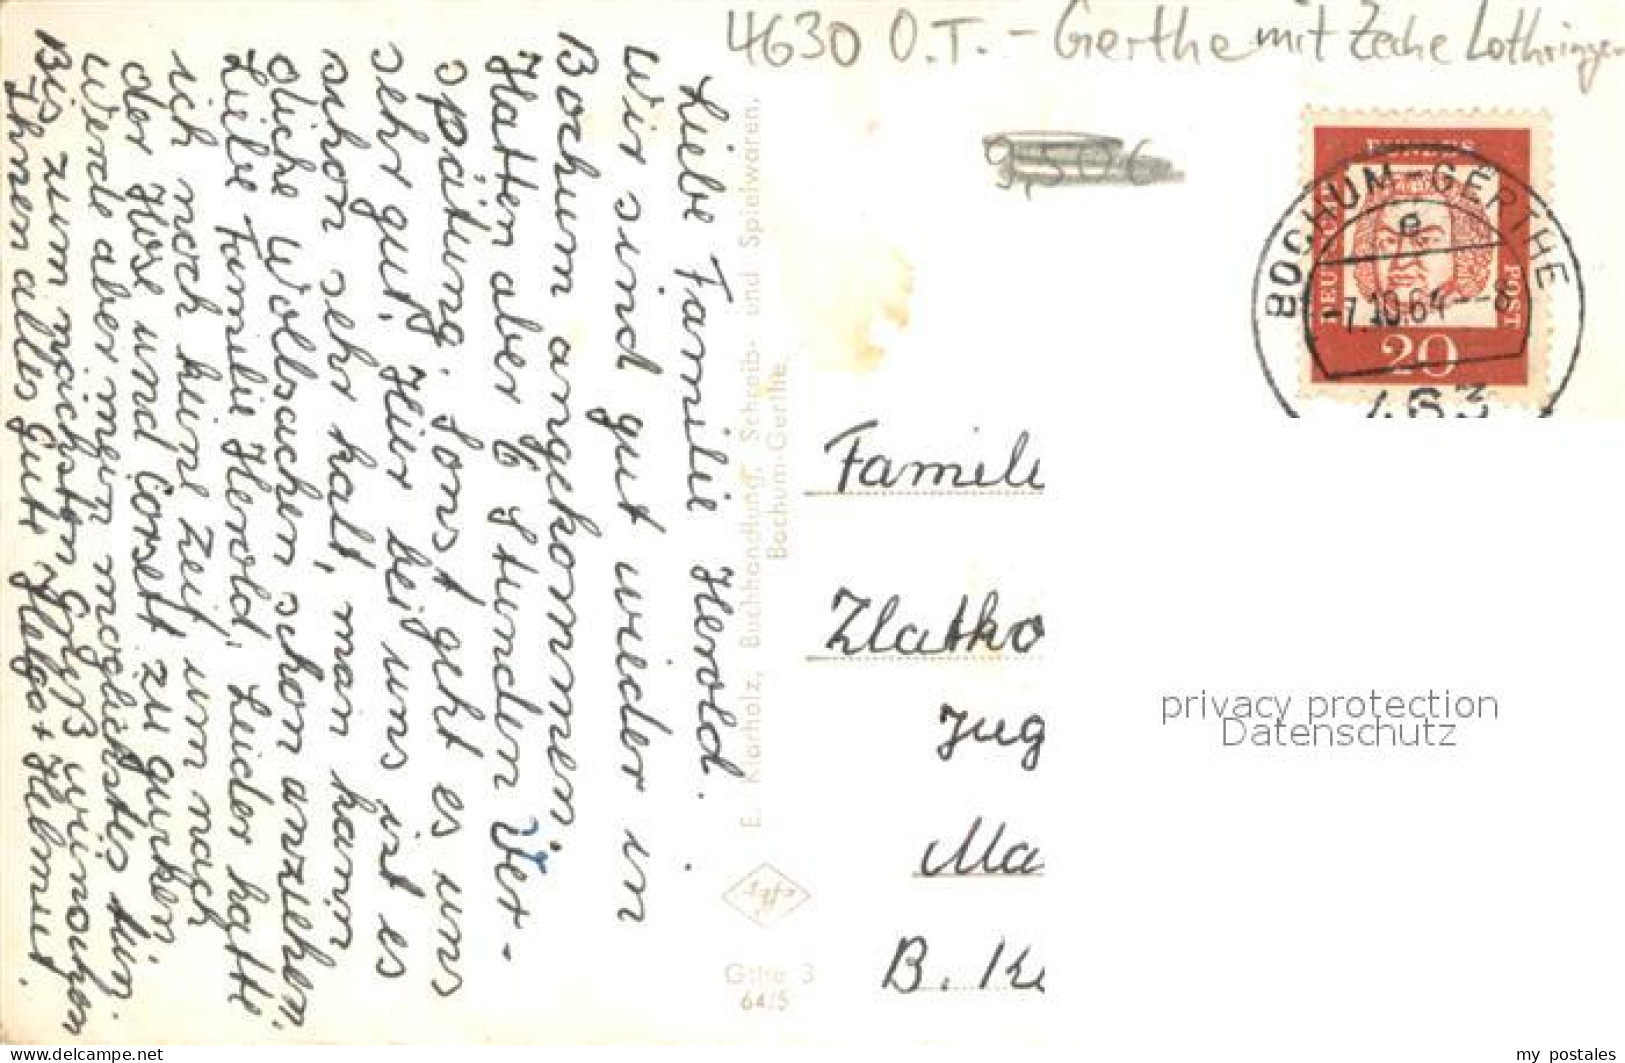 4630 O.T. - Gerthe mit Zeche Lothringen
BOCHUM-GERTHE
e
-7.10.64--8
463
DEUTSCHE
POST
20
Liebe Familie Herold.
Wir sind gut wieder in
Bochum angekommen.
Hatten aber 6 Stunden Ver-
spätung. Sonst geht es uns
sehr gut. Hier bei uns ist es
schon sehr kalt, man kann
dicke Wollsachen schon anziehen.
Liebe Familie Herold, Leider hatte
ich noch keine Zeit, um nach
der Hose und Corsett zu gucken.
Werde aber mein möglichstes tun.
Bis zum nächsten Gruß wünschen
Ihnen alles Gute Helga + Helmut.
E. Klarholz, Buchhandlung, Schreib- und Spielwaren,
Bochum-Gerthe
Gthe 3
64/5
Famili
Zlatko
Jug
Ma
B. Kr
privacy protection
Datenschutz
www.delcampe.net
my_postales